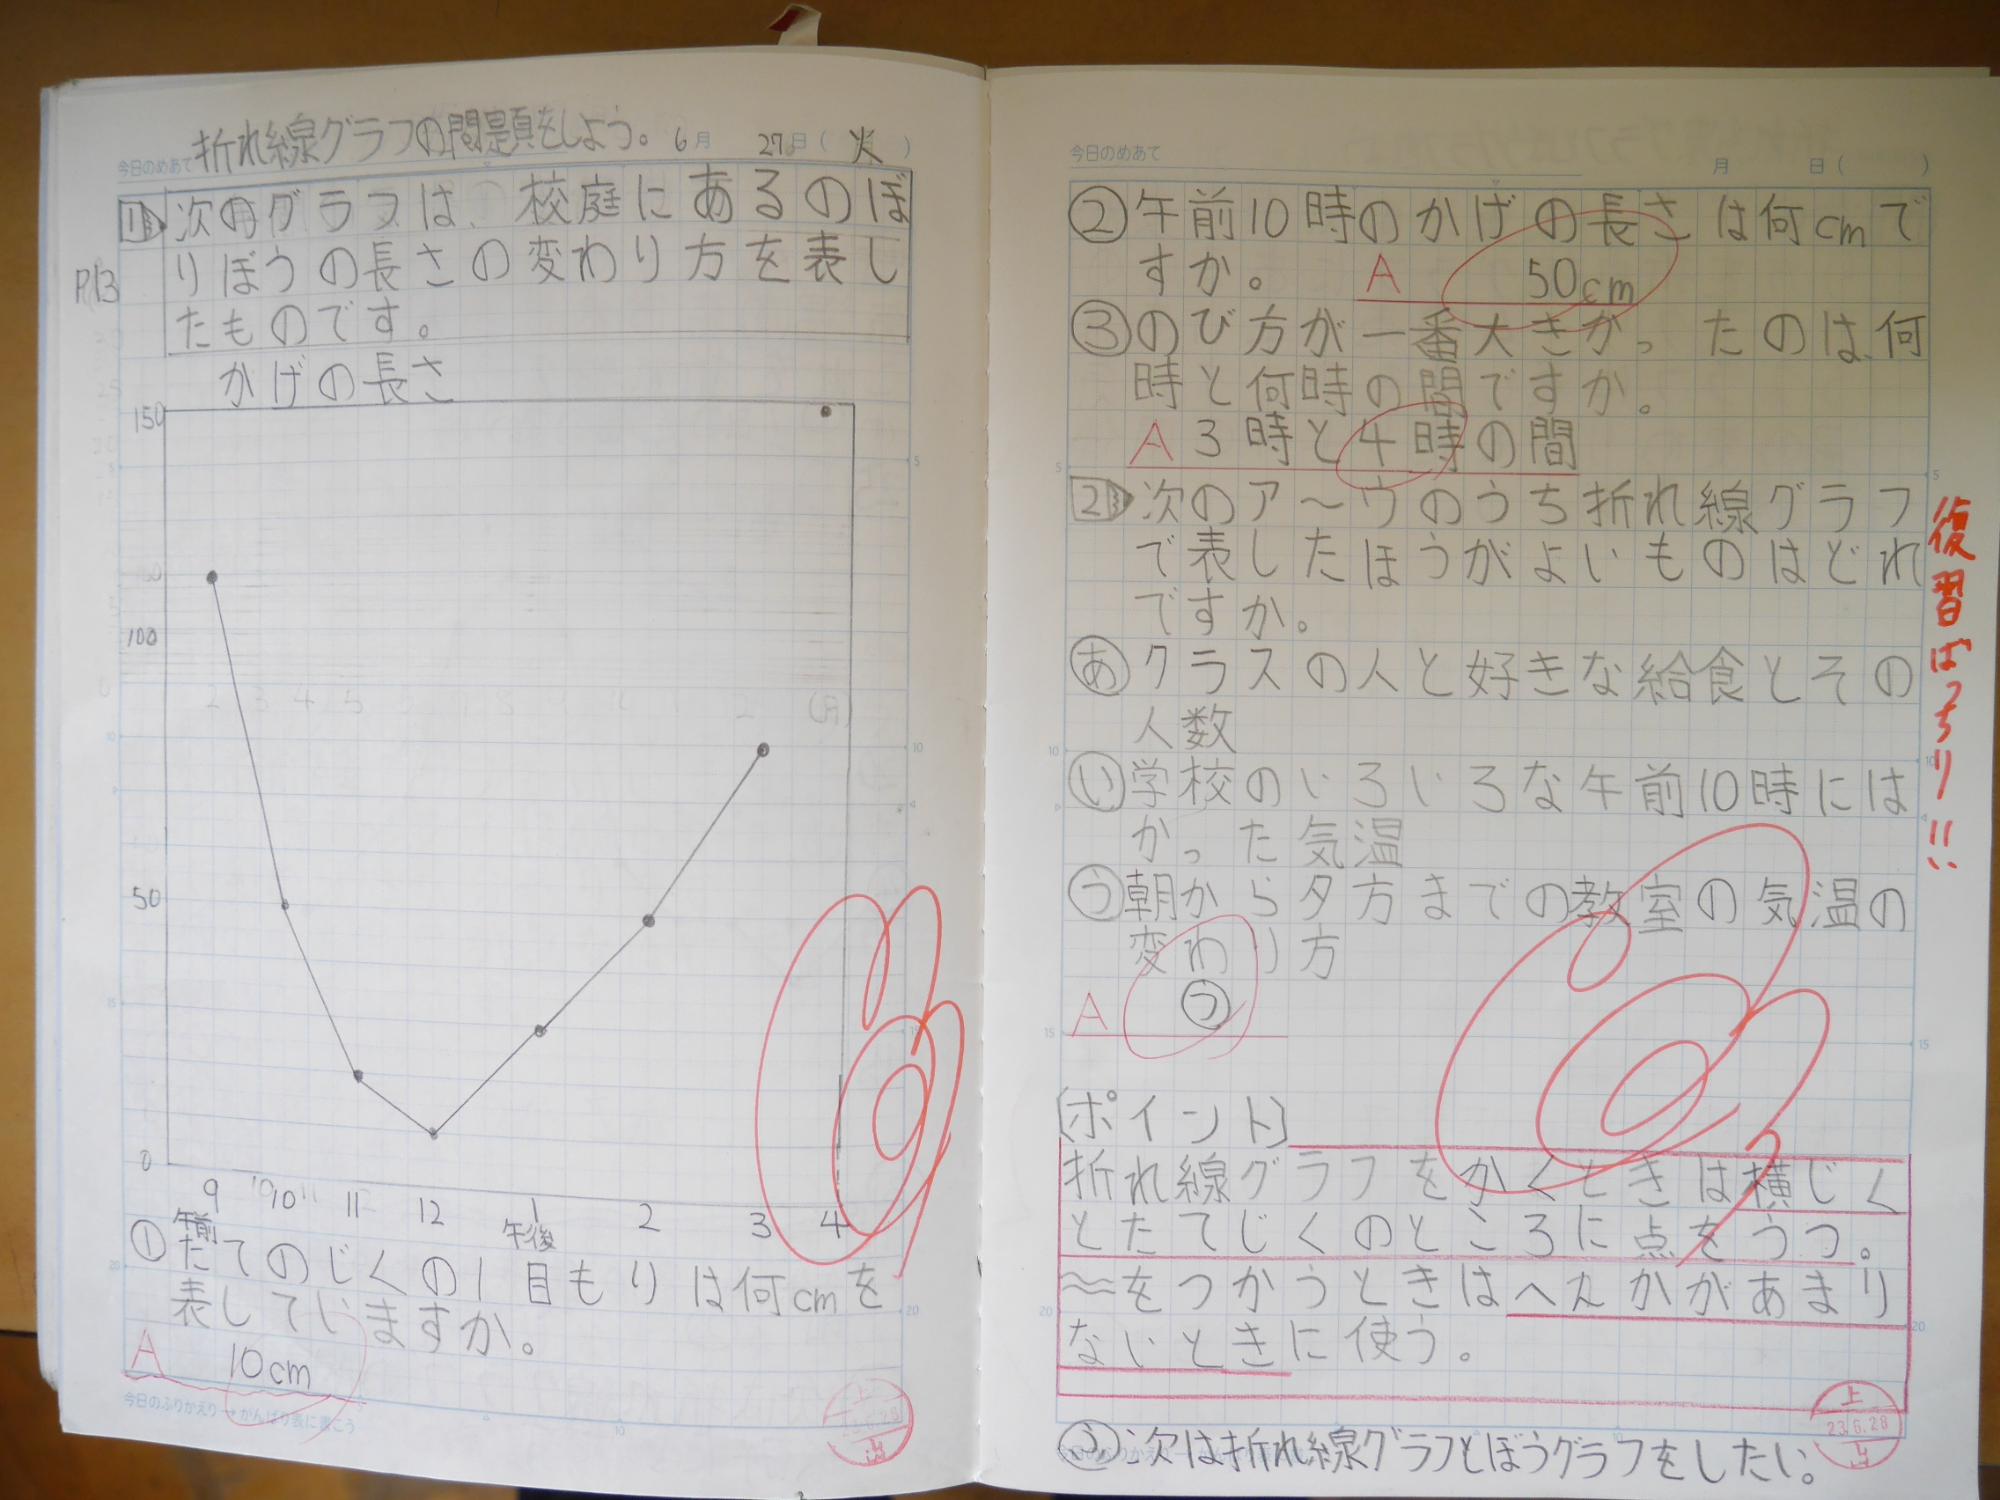 折れ線グラフの問題をしよう。 6月 27日(火)
今日のめあて
1 次のグラフは、校庭にあるのぼ
りぼうの長さの変わり方を表し
P13
たものです。
かげの長さ
150
100
50
0
9 10 11 12 1 2 3 4
午前 午後
① たてのじくの1目もりは何cmを
表していますか。
A 10cm
今日のふりかえり→がんばり表に書こう
今日のめあて 月 日( )
② 午前10時のかげの長さは何cmで
すか。 A 50cm
③ のび方が一番大きかったのは、何
時と何時の間ですか。
A 3時と4時の間
2 次のア〜ウのうち折れ線グラフ
で表したほうがよいものはどれ
ですか。
あ クラスの人と好きな給食とその
人数
い 学校のいろいろな午前10時には
かった気温
う 朝から夕方までの教室の気温の
変わり方
A う
復習ばっちり!!
[ポイント]
折れ線グラフをかくときは横じく
とたてじくのところに点をうつ。
≈をつかうときはへんかがあまり
ないときに使う。
上
23.6.28
ふ 次は折れ線グラフとぼうグラフをしたい。